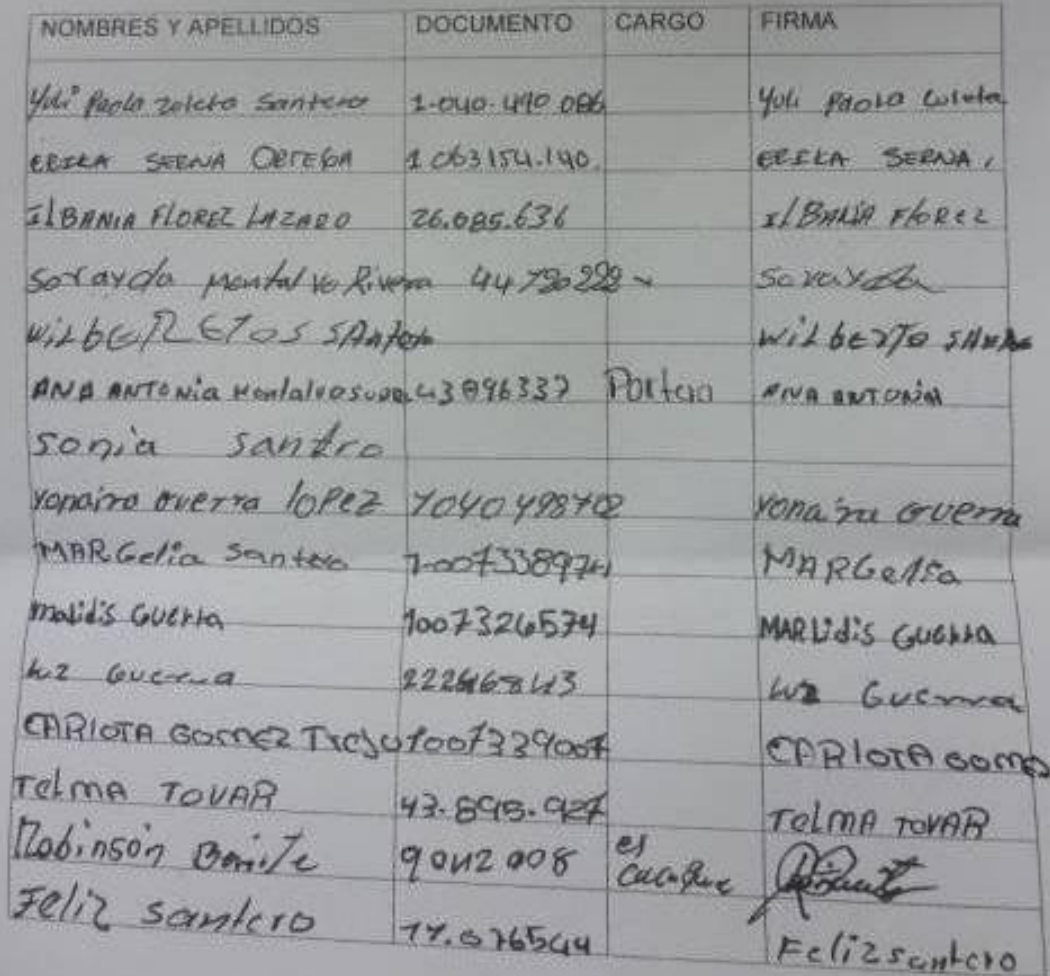 NOMBRES Y APELLIDOS DOCUMENTO CARGO FIRMA
Yuli Paola zoleta Santero 1.040.490.086 Yuli Paola
ERIKA SERNA ORTEGA 1063154.140. ERIKA SERNA
ILBANIA FLOREZ LAZARO 26.085.636 ILBANIA FLOREZ
Sorayda Montalvo Rivera 44790222 Sorayda
WILBERETOS SANTERO WILBERTO
ANA ANTONIA Montalvo 43896337 ANA ANTONIA
Sonia Santro
Yonaira Guerra LOPEZ 1040498702 Yonaira Guerra
MARGelia Santero MARGelia
malidis GUERRA 1007326574 MARLidis GUERRA
Luz Guerra Luz Guerra
CARLOTA GOMEZ Trejo 1007339007 CARLOTA GOMEZ
TELMA TOVAR 43.895.927 TELMA TOVAR
Robinson 9042008 el
Cacique
Feliz santero Feliz santero